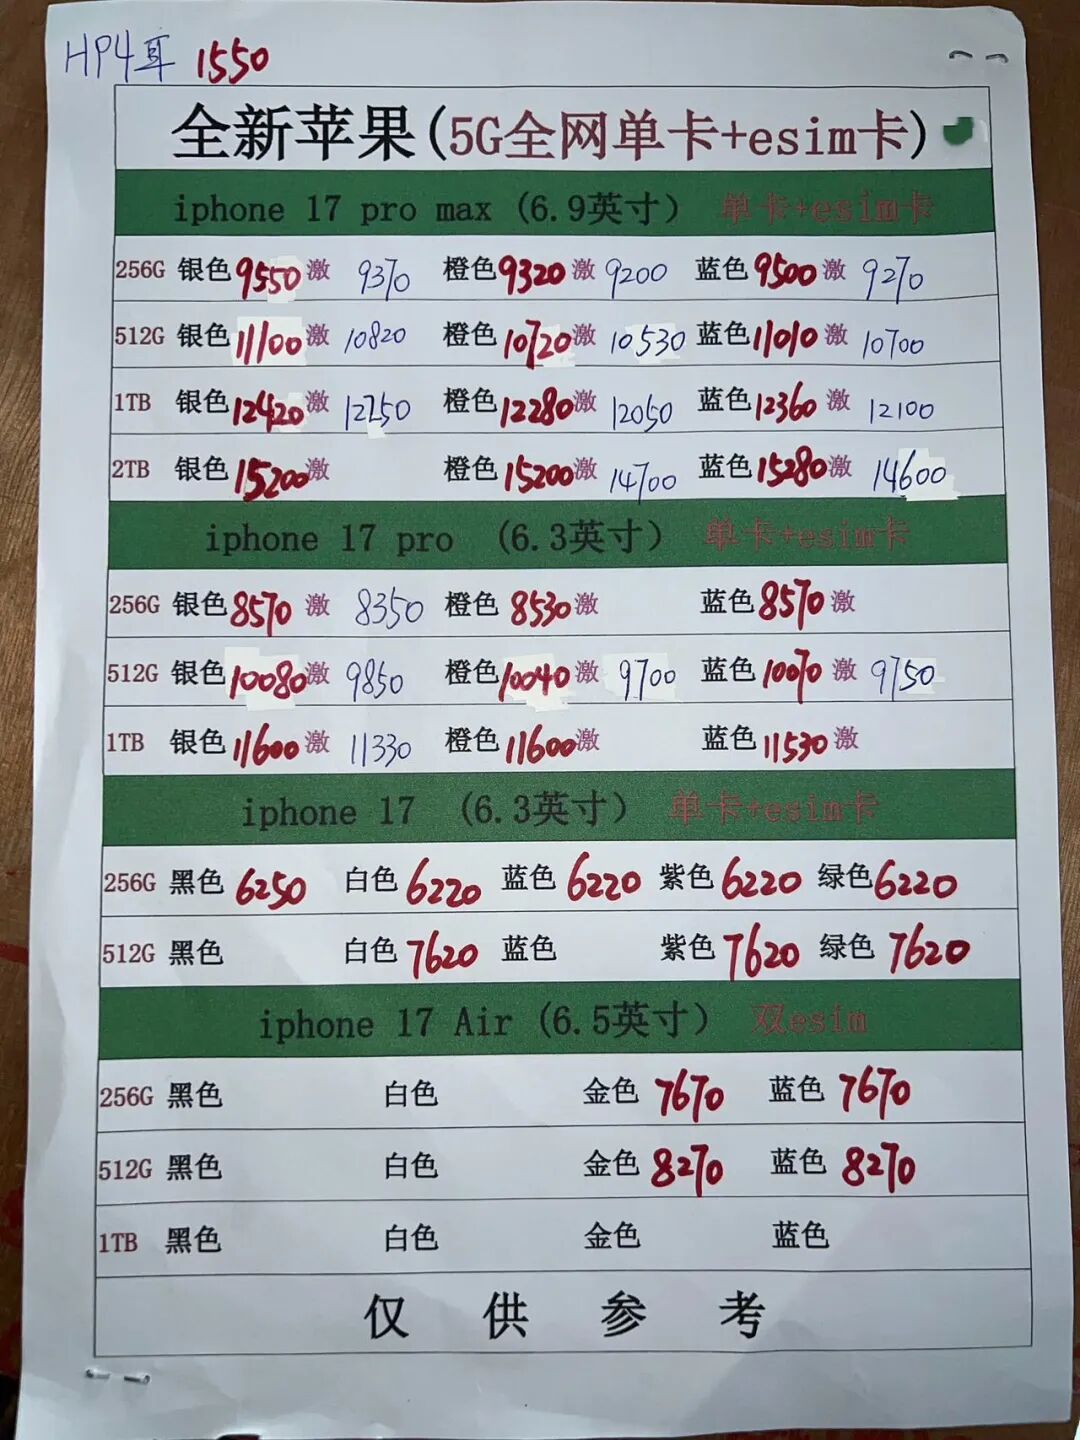 HP4耳 1550
全新苹果(5G全网单卡+esim卡)
iphone 17 pro max (6.9英寸) 单卡+esim卡
256G 银色 9550 激 9370 橙色 9320 激 9200 蓝色 9500 激 9270
512G 银色 11100 激 10820 橙色 10720 激 10530 蓝色 11010 激 10700
1TB 银色 12420 激 12250 橙色 12280 激 12050 蓝色 12360 激 12100
2TB 银色 15200 激 橙色 15200 激 14700 蓝色 15280 激 14600
iphone 17 pro (6.3英寸) 单卡+esim卡
256G 银色 8570 激 8350 橙色 8530 激 蓝色 8570 激
512G 银色 10080 激 9850 橙色 10040 激 9700 蓝色 10070 激 9750
1TB 银色 11600 激 11330 橙色 11600 激 蓝色 11530 激
iphone 17 (6.3英寸) 单卡+esim卡
256G 黑色 6250 白色 6220 蓝色 6220 紫色 6220 绿色 6220
512G 黑色 白色 7620 蓝色 紫色 7620 绿色 7620
iphone 17 Air (6.5英寸) 双esim
256G 黑色 白色 金色 7670 蓝色 7670
512G 黑色 白色 金色 8270 蓝色 8270
1TB 黑色 白色 金色 蓝色
仅供参考